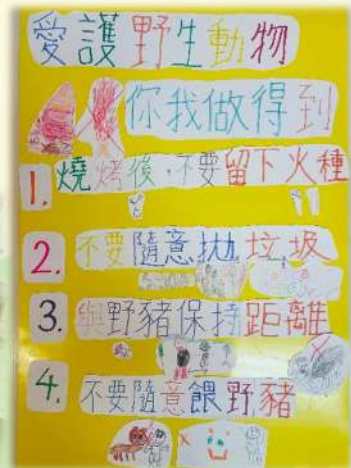 愛護野生動物
你我做得到
1. 燒烤後，不要留下火種
2. 不要隨意拋垃圾
3. 與野豬保持距離
4. 不要隨意餵野豬